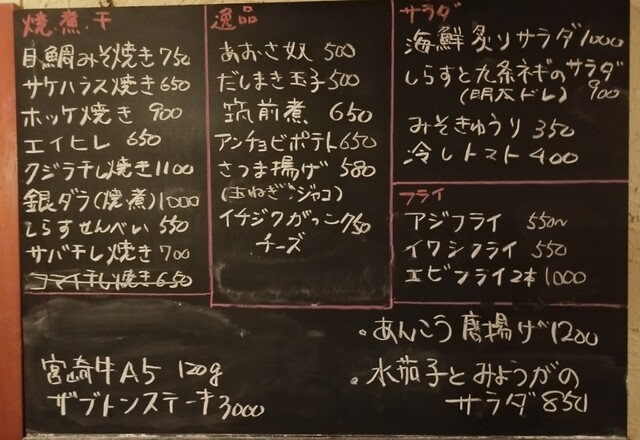 焼・煮・干
目鯛みそ焼き 750
サケハラス焼き 650
ホッケ焼き 900
エイヒレ 650
クジラ干し焼き 1100
銀ダラ(焼煮) 1000
しらすせんべい 550
サバ干し焼き 700
コマイ干し焼き 650
逸品
あおさ奴 500
だしまき玉子 500
筑前煮 650
アンチョビポテト 650
さつま揚げ 580
(玉ねぎ・ジャコ)
イチジクがっこ 750
チーズ
サラダ
海鮮炙りサラダ 1000
しらすと九条ネギのサラダ
(明太ドレ) 900
みそきゅうり 350
冷しトマト 400
フライ
アジフライ 550~
イワシフライ 550
エビフライ2本 1000
・あんこう唐揚げ 1200
・水茄子とみょうがの
サラダ 850
宮崎牛A5 120g
ザブトンステーキ 3000